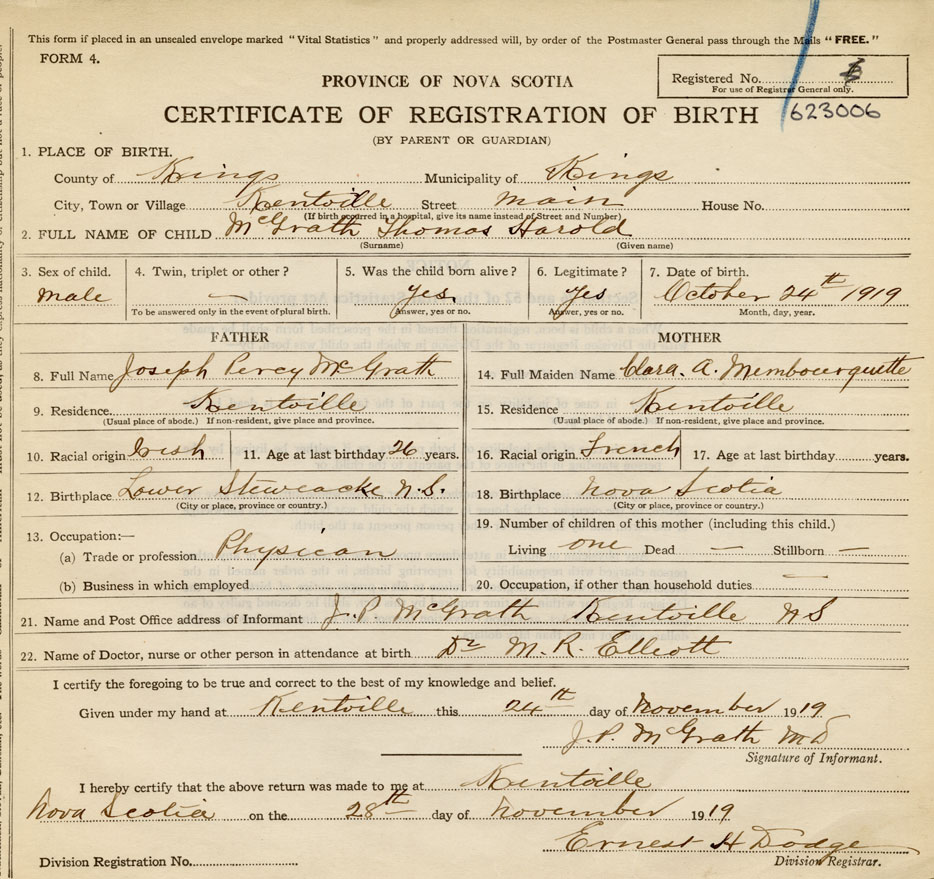 This form if placed in an unsealed envelope marked "Vital Statistics" and properly addressed will, by order of the Postmaster General pass through the Mails "FREE."
FORM 4.
Registered No.
For use of Registrar General only.
623006
PROVINCE OF NOVA SCOTIA
CERTIFICATE OF REGISTRATION OF BIRTH
(BY PARENT OR GUARDIAN)
1. PLACE OF BIRTH.
County of Kings Municipality of Kings
City, Town or Village Kentville Street Main House No.
(If birth occurred in a hospital, give its name instead of Street and Number)
2. FULL NAME OF CHILD McGrath Thomas Harold
(Surname) (Given name)
3. Sex of child. 4. Twin, triplet or other? 5. Was the child born alive? 6. Legitimate? 7. Date of birth.
Male — Yes Yes October 24th 1919
To be answered only in the event of plural birth. Answer, yes or no. Answer, yes or no. Month, day, year.
FATHER MOTHER
8. Full Name Joseph Percy McGrath 14. Full Maiden Name Clara. A. Membourquette
9. Residence. Kentville 15. Residence Kentville
(Usual place of abode.) If non-resident, give place and province. (Usual place of abode.) If non-resident, give place and province.
10. Racial origin Irish 11. Age at last birthday 26 years. 16. Racial origin French 17. Age at last birthday years.
12. Birthplace Lower Stewiacke N.S. 18. Birthplace Nova Scotia
(City or place, province or country.) (City or place, province or country.)
13. Occupation:— 19. Number of children of this mother (including this child.)
(a) Trade or profession Physican Living one Dead — Stillborn —
(b) Business in which employed 20. Occupation, if other than household duties —
21. Name and Post Office address of Informant J. P. McGrath Kentville N S
22. Name of Doctor, nurse or other person in attendance at birth Dr M. R. Elliott
I certify the foregoing to be true and correct to the best of my knowledge and belief.
Given under my hand at Kentville this 24th day of November 1919
J. P. McGrath MD
Signature of Informant.
I hereby certify that the above return was made to me at Kentville
Nova Scotia on the 28th day of November 1919
Ernest H Dodge
Division Registration No. Division Registrar.